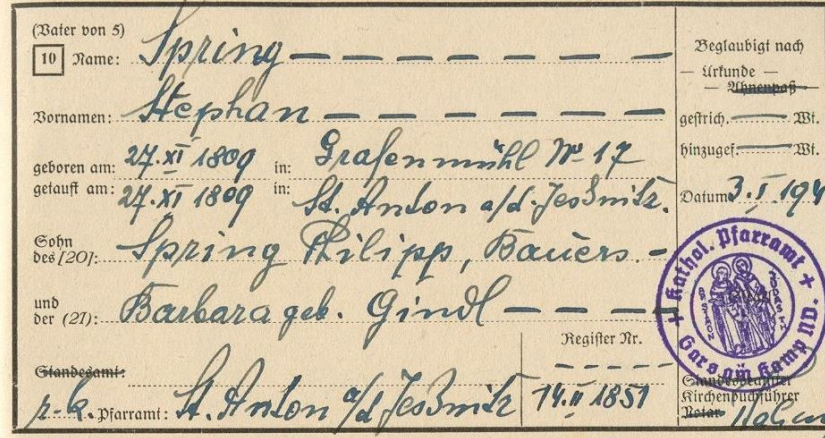 (Vater von 5)
10 Name: Spring
Vornamen: Stephan
geboren am: 27. XI 1809 in: Grafenmühl Nr. 17
getauft am: 27. XI 1809 in: St. Anton a/d. Jeßnitz.
Sohn des [20]: Spring Philipp, Bauers.
und der (21): Barbara geb. Gindl
Standesamt:
r.k. Pfarramt: St. Anton a/d Jeßnitz
Register Nr.
14. II 1851
Beglaubigt nach
— Urkunde —
— Ahnenpaß —
gestrich. Wt.
hinzugef. Wt.
Datum 3. I. 194
+ Kathol. Pfarramt +
Gars am Kamp ND.
Standesbeamter
Kirchenbuchführer
Notar